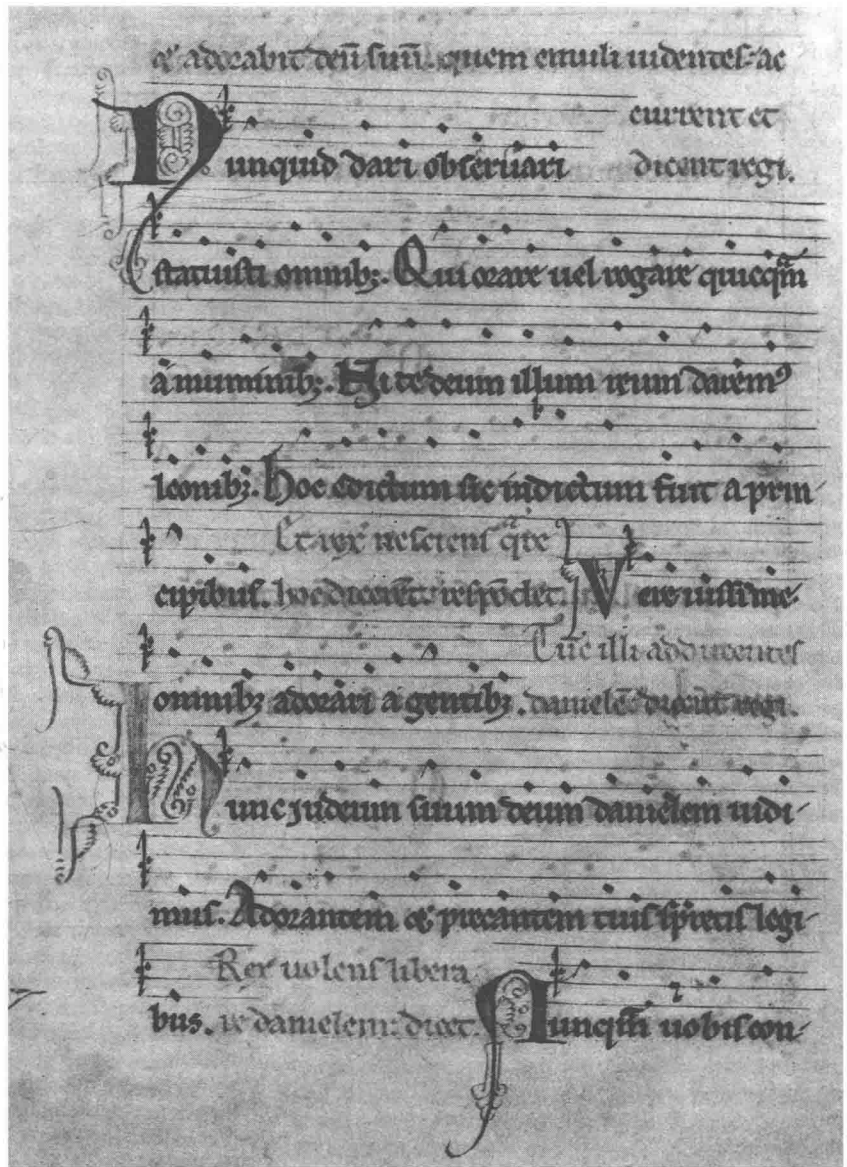 & adorabit deū suū. quem emuli uidentes ac
current et
Nunquid dari obseruari dicent regi.
statuisti omnibꝫ. Qui orare uel rogare quicqͣm
a numinibꝫ. Ni te deum illum reum daremꝰ
leonibꝫ. hoc edictum sic indictum fuit a prin-
Et rex nesciens qͣre
cipibus. hoc dicerēt. respōdet. Vere iussi me-
Tūc illi adducentes
omnibꝫ adorari a gentibꝫ. danielē dicūt regi.
Hunc iudeum suum deum danielem uidi-
mus. Adorantem & precantem tuis sp̄retis legi-
Rex uolens libera
bus. re danielem: dicet. Nunqͣm uobis con-